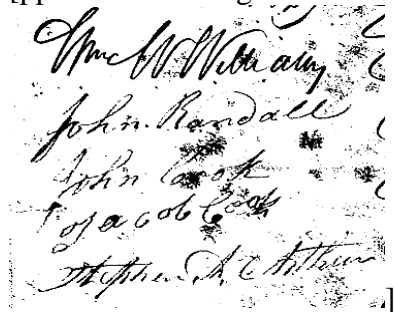 Wm W Williams
John Randall
John Cook
Jacob Cook
Stephen McArthur
]